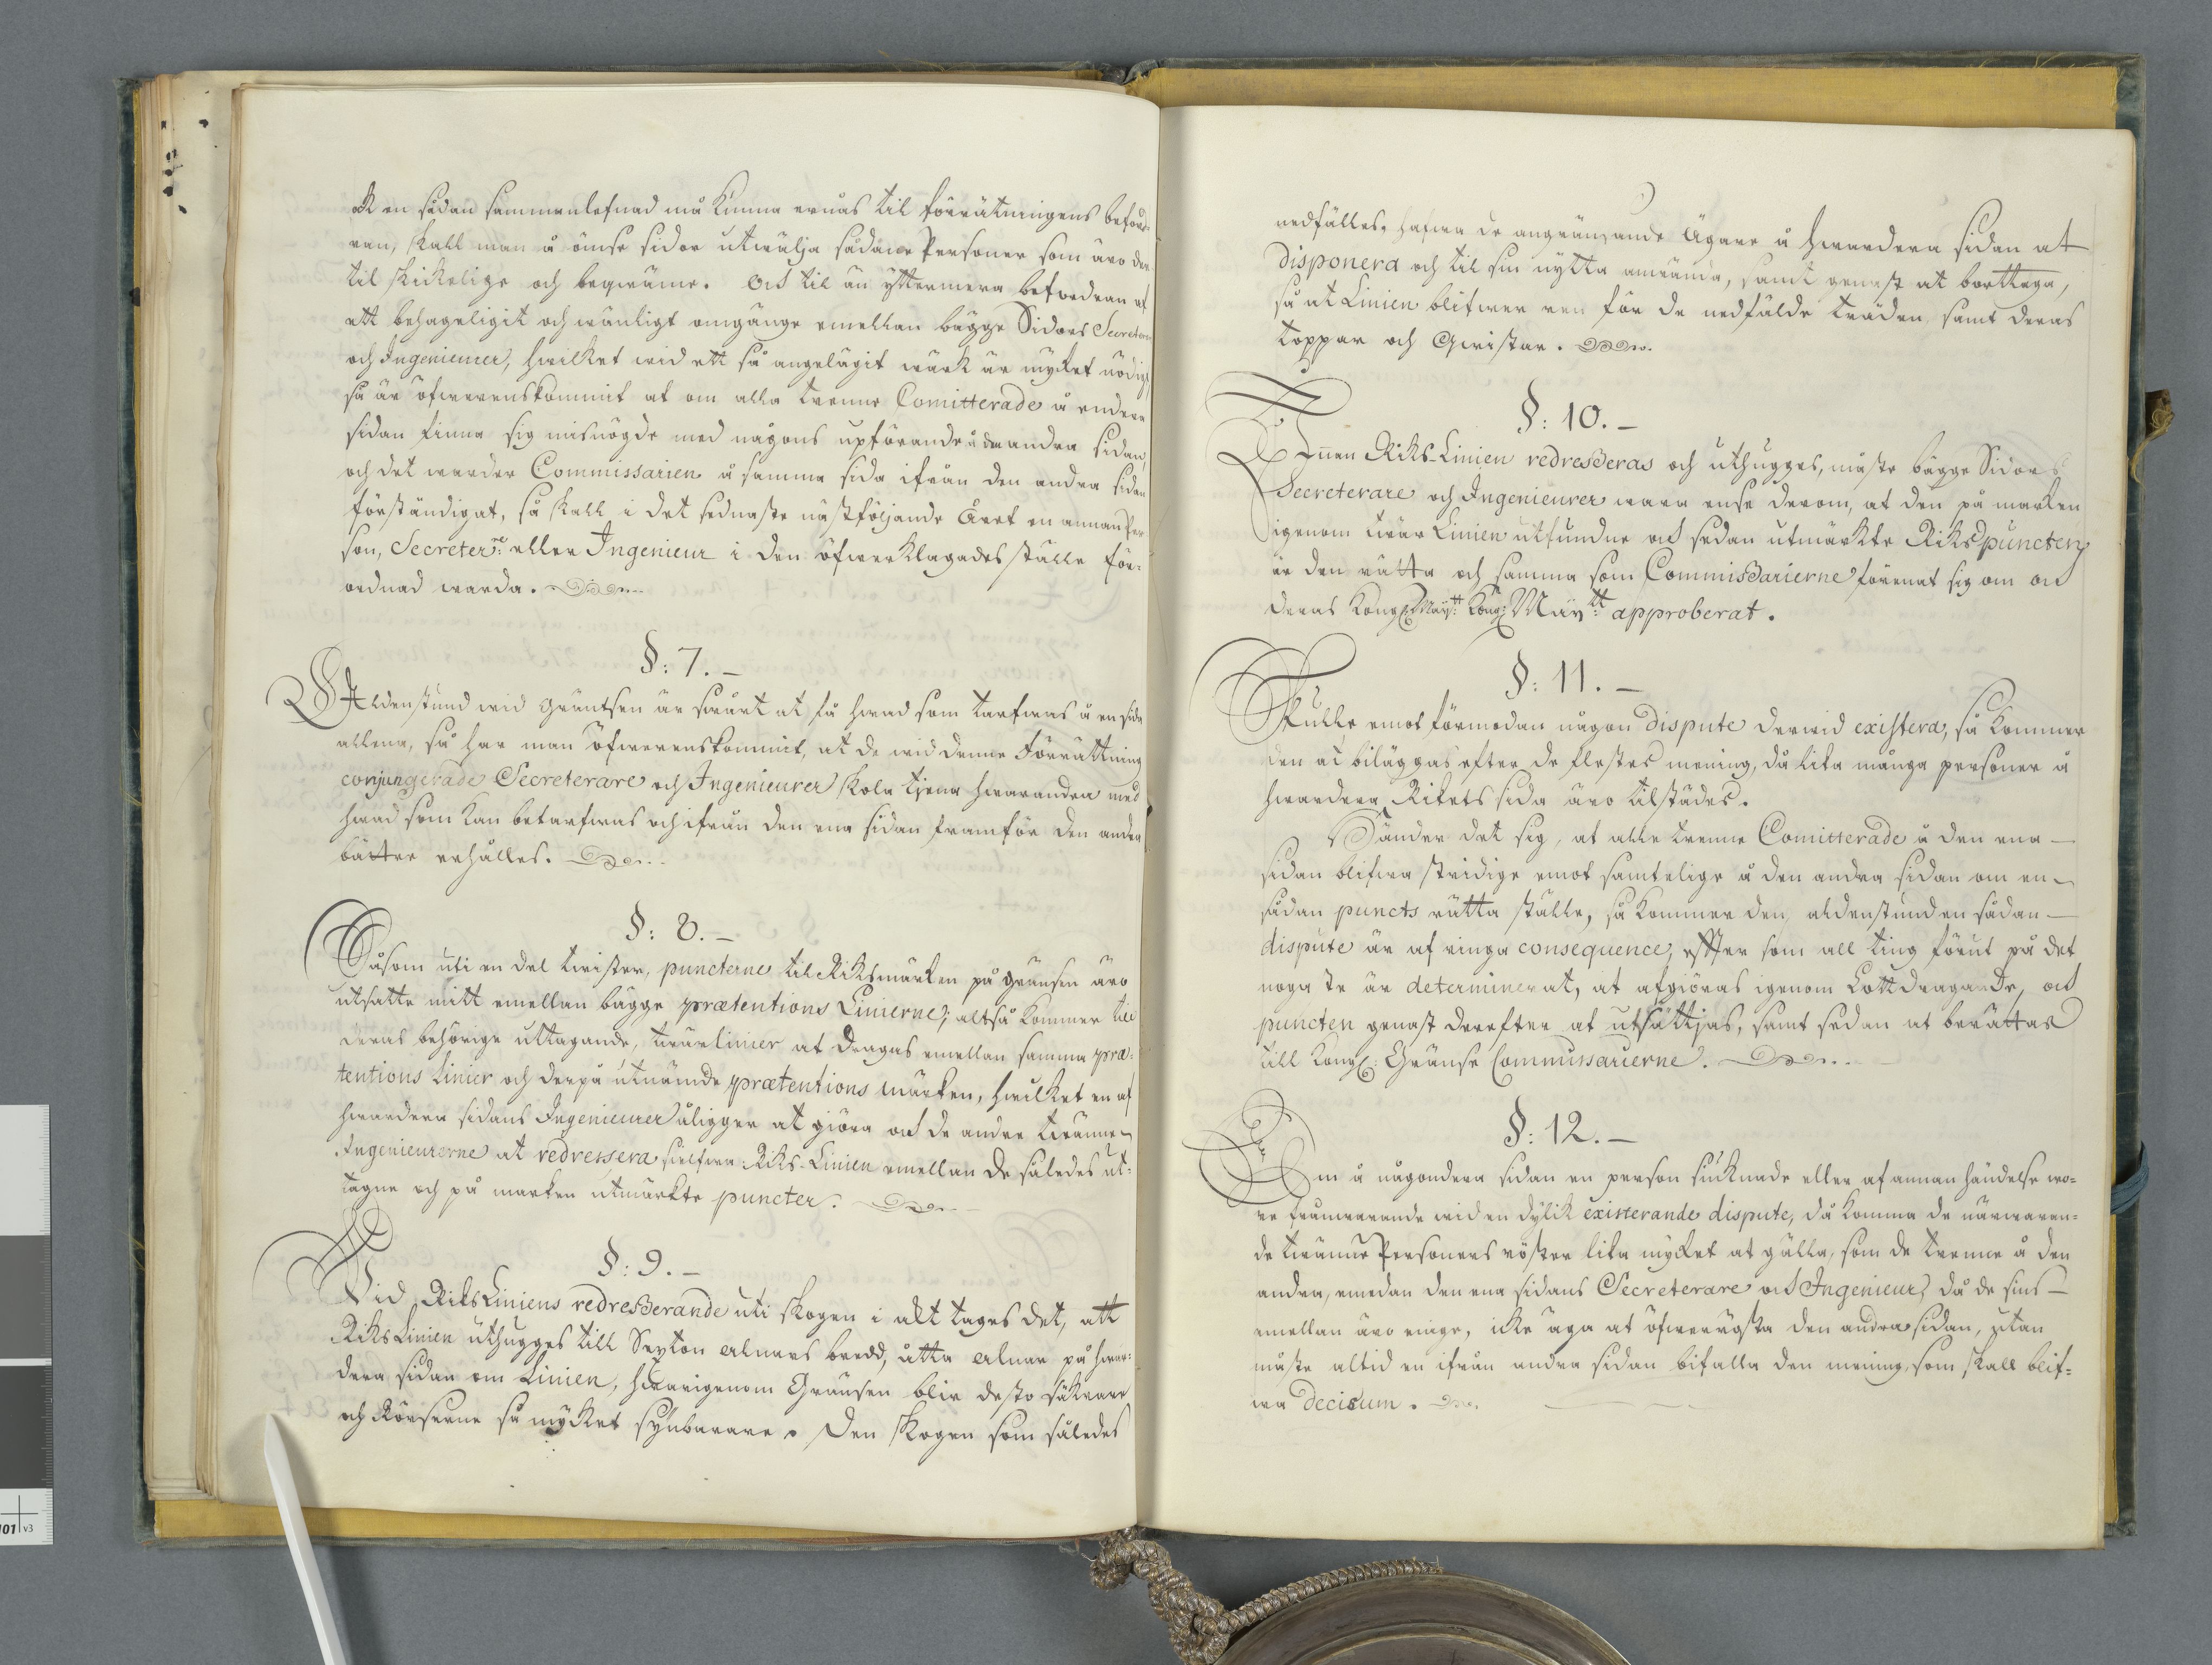 en sådan sammanlefnad må kunna ernås til förrätningens beford-
ran, skall man å ömse sidor utwälja sådane Personer som äro der
til skickelige och beqwäme. Och til än yttermera befordran af
ett behageligit och wänligt omgänge emellan bägge Sidors Secreterare
och Ingenieurer, hwilket wid ett så angelägit wärk är mycket nödigt,
så är öfwerenskommit at om alla trenne Comitterade å endera
sidan finna sig misnögde med någons upförande å den andra sidan,
och det warder Commissarien å samma sida ifrån den andra sidan
förständigat, så skall i det sednaste nästföljande Året en annan Per-
son, Secreter:re eller Ingenieur i den öfwerklagades ställe för-
ordnad warda.
§: 7.
Aldenstund wid gräntsen är swårt at få hwad som tarfwas å en sida
allena, så har man öfwerenskommit, at de wid denne Förrättning
conjungerade Secreterare och Ingenieurer skola tjena hwarandra med
hwad som kan betarfwas och ifrån den ena sidan framför den andra
bättre erhålles.
§: 8.
Såsom uti en del twister, puncterne til Riksmärken på gränsen äro
utsatte mitt emellan bägge prætentions Linierne; altså kommer till
deras behörige uttagande, twärlinier at dragas emellan samma præ-
tentions Linier och derpå utnämde prætentions märken, hwilket en af
hwardera sidans Ingenieurer åligger at giöra och de andre twänne
Ingenieurerne at redressera sielfwa Riks-Linien emellan de således ut-
tagne och på marken utmärkte puncter.
§: 9.
Vid RiksLiniens redresserande uti skogen i akt tages det, att
RiksLinien uthugges till Sexton alnars bredd, åtta alnar på hwar-
dera sidan om Linien, hwarigenom Gränsen blir desto säkrare
och Rörserne så mycket synbarare. Den skogen som således
nedfälles, hafwa de angränsande Ägare å hwardera sidan at
disponera och til sin nytta använda, samt genast at borttaga,
så at Linien blifwer ren för de nedfälde träden samt deras
toppar och qwistar.
§: 10.
Innan Riks-Linien redresseras och uthugges, måste bägge Sidors
Secreterare och Ingenieurer wara ense derom, at den på marken
igenom twär Linien utfundne och sedan utmärkte Rikspuncten
är den rätta och samma som Commissarierne förenat sig om och
deras Kongl: Maÿ:tt Kong: Maÿ:tt approberat.
§: 11.
Skulle emot förmodan någon dispute derwid existera, så kommer
den at biläggas efter de flestes mening, då lika många personer å
hwardera Rikets sida äro tilstädes.
Händer det sig, at alle trenne Comitterade å den ena
sidan blifwa stridige emot samtelige å den andra sidan om en
sådan puncts rätta ställe, så kommer den, aldenstund en sådan
dispute är af ringa consequence, efter som all ting förut på det
nogaste är determinerat, at afgiöras igenom Lottdragande, och
puncten genast derefter at utsättjas, samt sedan at berättas
till Kongl: Gränse Commissarierne.
§: 12.
Om å någondera sidan en person siucknade eller af annan händelse wo-
re frånwarande wid en dylik existerande dispute, då komma de närwaran-
de twänne Personers röster lika mycket at gälla, som de trenne å den
andra, emedan den ena sidans Secreterare och Ingenieur, då de sins
emellan äro eniga, icke äga at öfwerrösta den andra sidan, utan
måste altid en ifrån andra sidan bifalla den mening, som skall blif-
wa decisum.